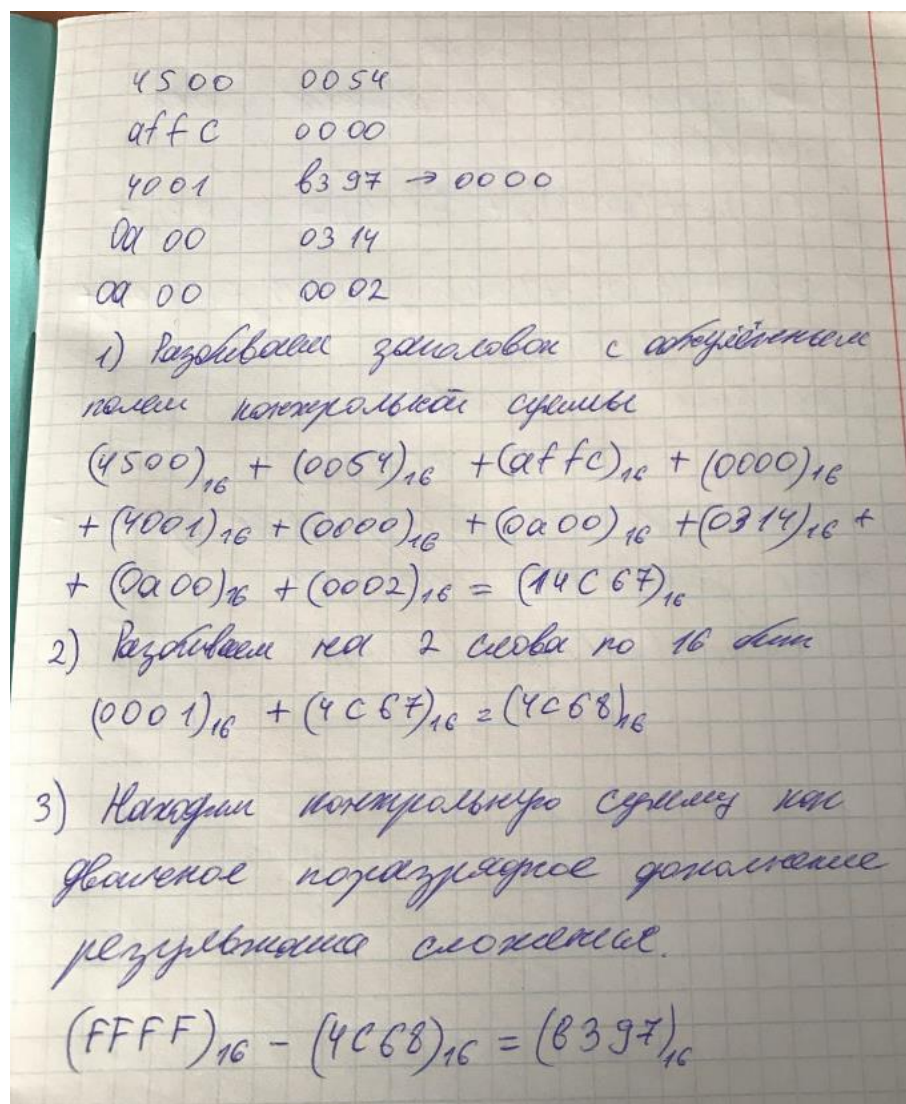 4500 0054
affc 0000
4001 b397 → 0000
0a 00 03 14
0a 00 00 02
1) Разбиваем заголовок с обнулённым
полем контрольной суммы
(4500)₁₆ + (0054)₁₆ + (affc)₁₆ + (0000)₁₆
+ (4001)₁₆ + (0000)₁₆ + (0a00)₁₆ + (0314)₁₆ +
+ (0a00)₁₆ + (0002)₁₆ = (14C67)₁₆
2) Разбиваем на 2 слова по 16 бит
(0001)₁₆ + (4C67)₁₆ = (4C68)₁₆
3) Находим контрольную сумму как
двоичное поразрядное дополнение
результата сложения.
(FFFF)₁₆ - (4C68)₁₆ = (B397)₁₆